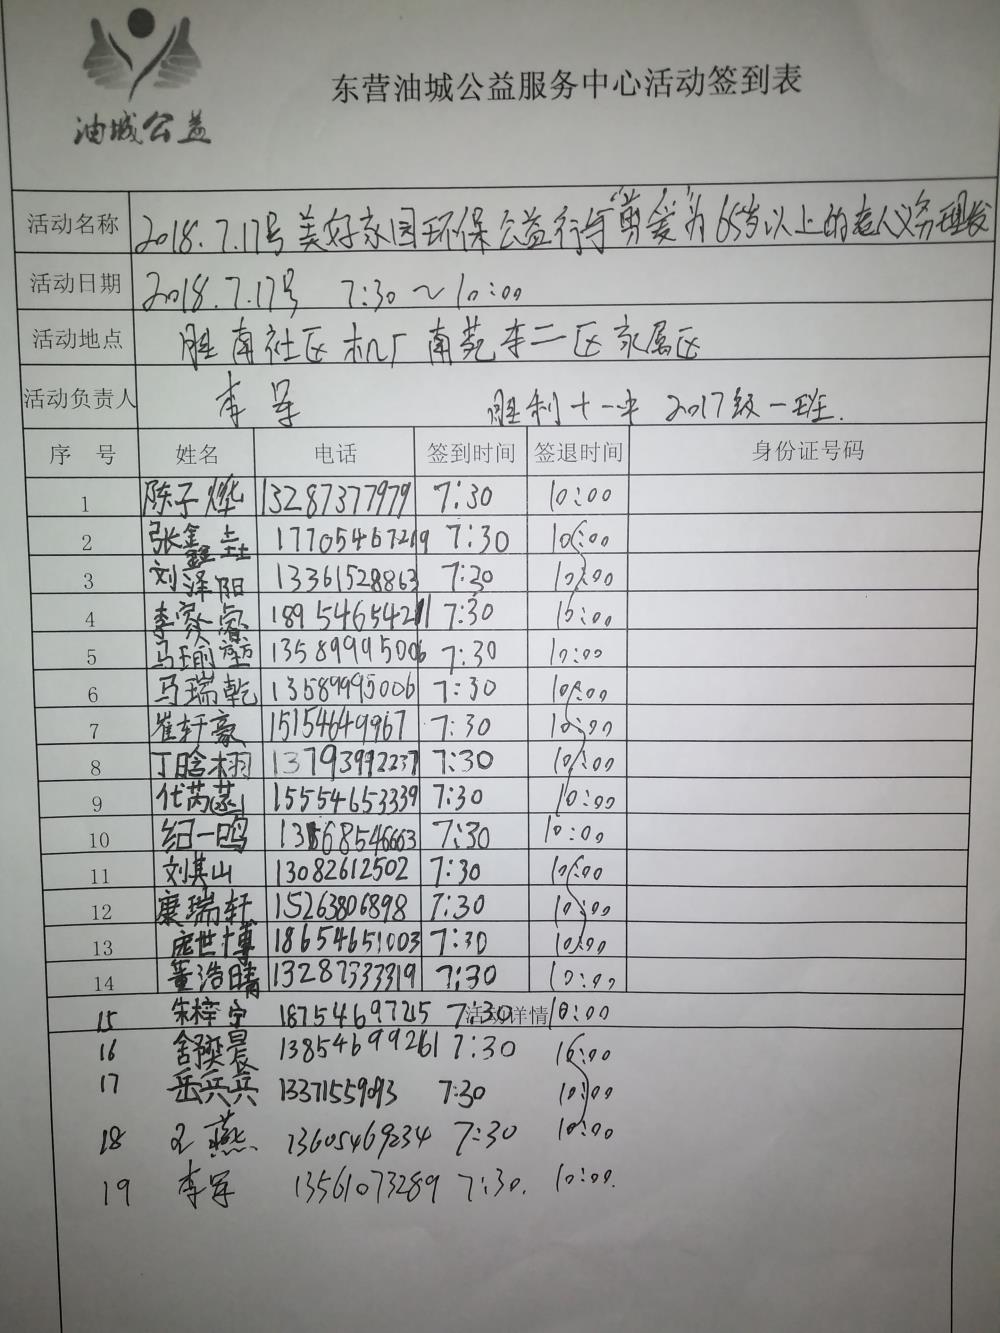 油城公益
东营油城公益服务中心活动签到表
活动名称 2018.7.17号美好家园环保公益行与"剪爱"为65岁以上的老人义务理发
活动日期 2018.7.17号 7:30~10:00
活动地点 胜南社区机厂南苑李二区家属区
活动负责人 李军 胜利十一中 2017级一班.
序号 姓名 电话 签到时间 签退时间 身份证号码
1 陈子烨 13287377979 7:30 10:00
2 张鑫垚 17705467219 7:30 10:00
3 刘泽阳 13361528863 7:30 10:00
4 李 18954654211 7:30 10:00
5 马瑜 13589995006 7:30 10:00
6 马瑞乾 13589995006 7:30 10:00
7 崔轩豪 15154649967 7:30 10:00
8 丁晗栩 13793992237 7:30 10:00
9 代芮菡 15554653339 7:30 10:00
10 纪一鸣 13568546663 7:30 10:00
11 刘其山 13082612502 7:30 10:00
12 康瑞轩 15263806898 7:30 10:00
13 庞世博 18654651003 7:30 10:00
14 董浩晴 13287333319 7:30 10:00
15 朱梓宁 18754697215 7:30 活动详情 10:00
16 舒奕晨 13854699261 7:30 10:00
17 岳兵兵 13371559093 7:30 10:00
18 王燕 13605469234 7:30 10:00
19 李军 13561073289 7:30. 10:00.